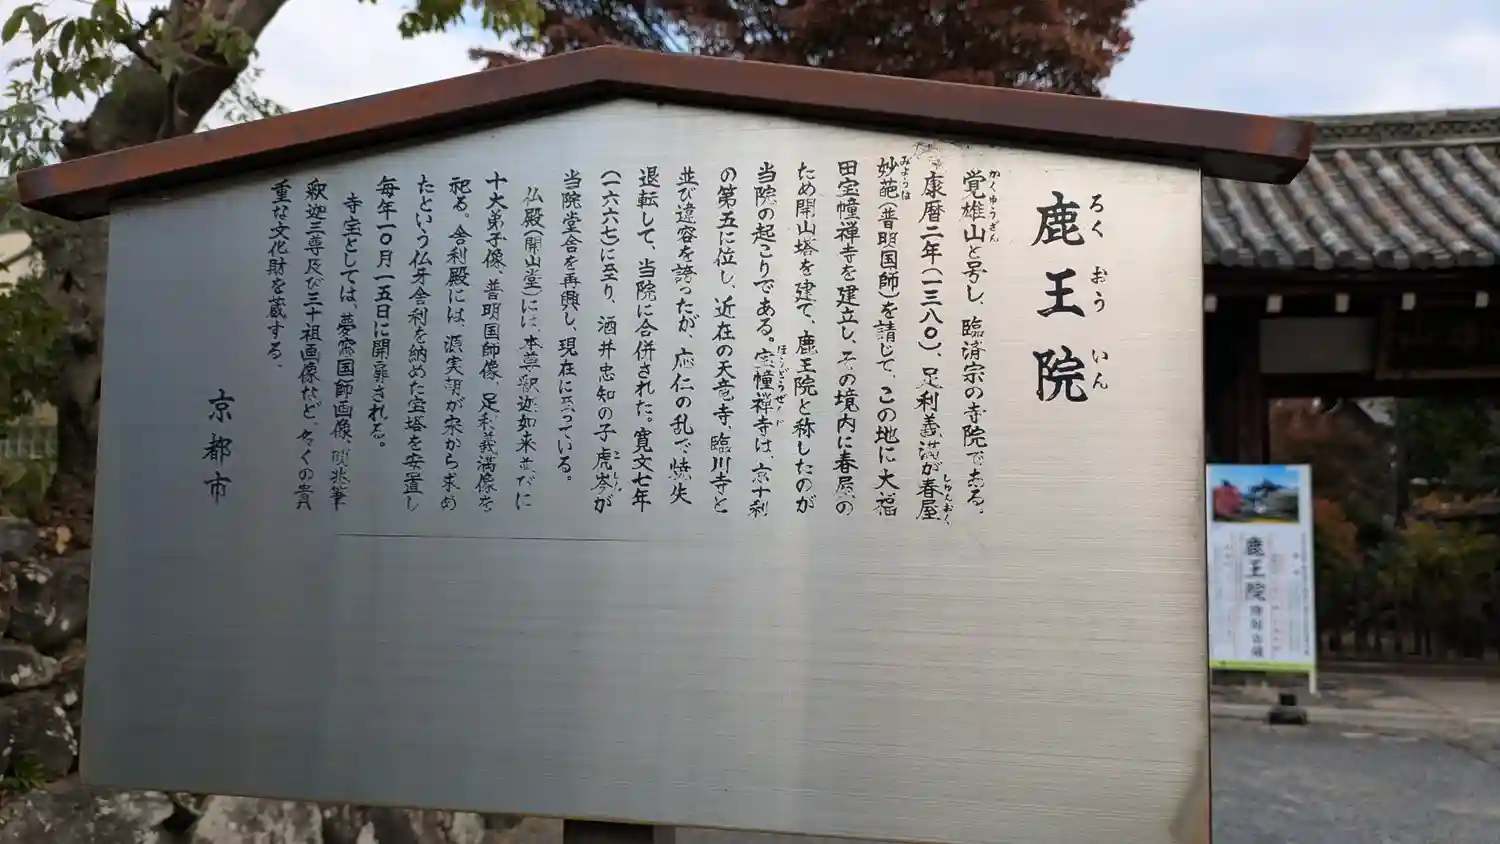 鹿王院
ろくおういん
覚雄山と号し、臨済宗の寺院である。
かくゆうざん
康暦二年(一三八〇)、足利義満が春屋
しゅんおく
妙葩(普明国師)を請じて、この地に大福
みょうは
田宝幢禅寺を建立し、その境内に春屋の
ため開山塔を建て、鹿王院と称したのが
当院の起こりである。宝幢禅寺は、京十刹
ほうどうぜんじ
の第五に位し、近在の天竜寺、臨川寺と
並び違容を誇ったが、応仁の乱で焼失
退転して、当院に合併された。寛文七年
(一六六七)に至り、酒井忠知の子虎岑が
こしん
当院堂舎を再興し、現在に至っている。
仏殿(開山堂)には、本尊釈迦如来並びに
十大弟子像、普明国師像、足利義満像を
祀る。舎利殿には、源実朝が宋から求め
たという仏牙舎利を納めた宝塔を安置し
毎年一〇月一五日に開扉される。
寺宝としては、夢窓国師画像、明兆筆
釈迦三尊及び三十祖画像など、多くの貴
重な文化財を蔵する。
京都市
鹿王院